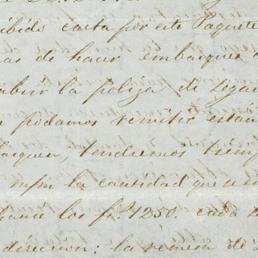 cibido carta por este Paquete
as de hacer embarques
cibir la poliza de segu
podamos remitir estan
barquen, tendremos tiemp
mpm la cantidad que
los ps. 1250. cada
direccion; la remesa de